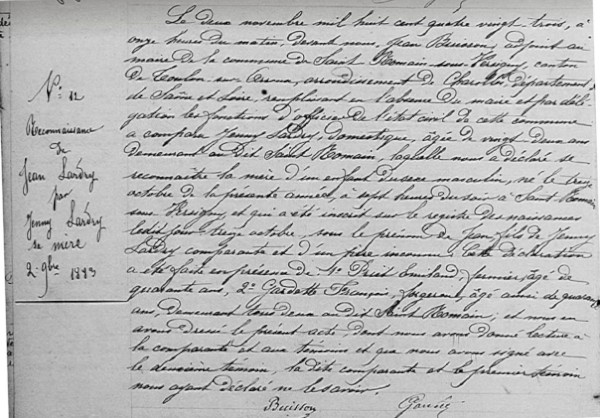 N° 12
Reconnaissance
de
Jean Lardry
par
Jenny Lardry
sa mère
2 9bre 1893
Le deux novembre mil huit cent quatre vingt trois, à
onze heures du matin, devant nous, Jean Buisson, adjoint au
maire de la commune de Saint Romain-sous-Versigny, canton
de Toulon sur Arroux, arrondissement de Charolles, Département
de Saône et Loire, remplissant en l'absence du maire et par délé
gation les fonctions d'officier de l'état civil de cette commune
a comparu Jenny Lardry, domestique, âgée de vingt deux ans
demeurant au dit Saint Romain, laquelle nous a déclaré se
reconnaître la mère d'un enfant du sexe masculin, né le treize
octobre de la présente année, à sept heures du soir à Saint Romain
sous Versigny et qui a été inscrit sur le registre des naissances
ledit jour treize octobre, sous le prénom de Jean fils de Jenny
Lardry comparante et d'un père inconnu. Cette déclaration
a été faite en présence de 1° Emiland, fermier, âgé de
quarante ans, 2° François, forgeron, âgé aussi de quarante
ans, demeurant tous deux au dit Saint Romain; et nous en
avons dressé le présent acte dont nous avons donné lecture à
la comparante et aux témoins et que nous avons signé avec
le deuxième témoin, la dite comparante et le premier témoin
nous ayant déclaré ne le savoir.
Buisson